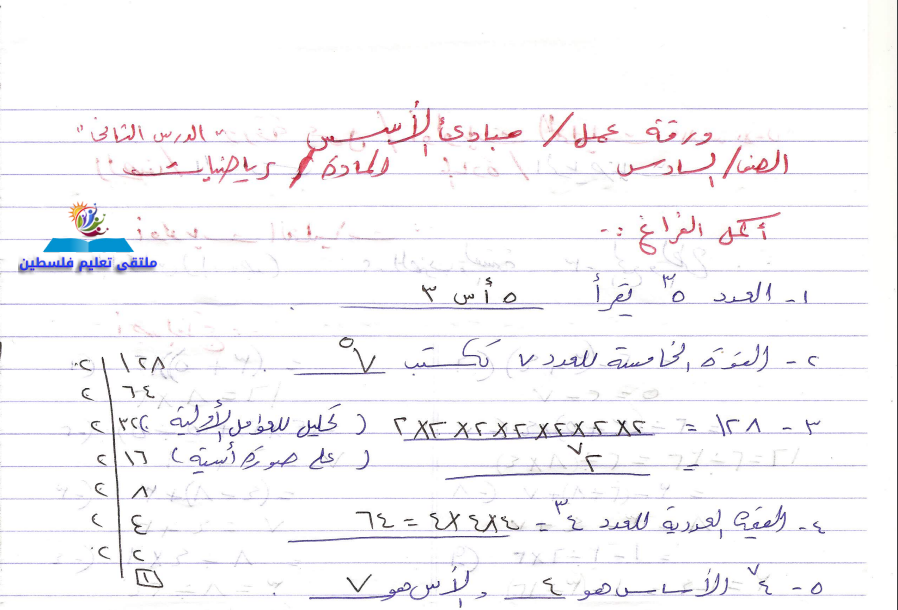 ورقة عمل / مبادئ الأسس "الدرس الثاني"
الصف / السادس المادة / رياضيات
أكمل الفراغ :-
ملتقى تعليم فلسطين
١- العدد ٥³ تقرأ ٥ أس ٣
٢- القوة الخامسة للعدد ٧ تكتب ٧⁵
٣- ١٢٨ = ٢×٢×٢×٢×٢×٢×٢ ( تحليل للعوامل الأولية )
٢⁷ ( على صورة أسية )
٤- القيمة العددية للعدد ٤³ = ٤×٤×٤ = ٦٤
٥- ٤⁷ الأساس هو ٤ والأس هو ٧
١٢٨ | ٢
٦٤ | ٢
٣٢ | ٢
١٦ | ٢
٨ | ٢
٤ | ٢
٢ | ٢
١